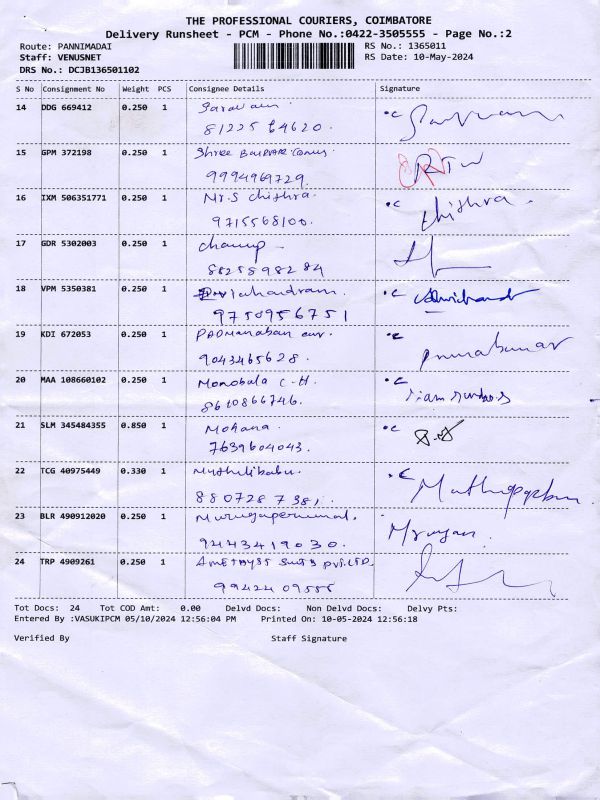 THE PROFESSIONAL COURIERS, COIMBATORE
Delivery Runsheet - PCM - Phone No.:0422-3505555 - Page No.:2
Route: PANNIMADAI
RS No.: 1365011
Staff: VENUSNET
RS Date: 10-May-2024
DRS No.: DCJB136501102
S No Consignment No Weight PCS Consignee Details Signature
14 DDG 669412 0.250 1 Saravanan
81225 64620.
15 GPM 372198 0.250 1 Shree
9994969729
16 IXM 506351771 0.250 1 Mr.S chithra. chithra
9715568100.
17 GDR 5302003 0.250 1
18 VPM 5350381 0.250 1
9750956751
19 KDI 672053 0.250 1 PADManaban
9043465628.
20 MAA 108660102 0.250 1 Monobala C.H.
8610866746.
21 SLM 345484355 0.850 1 Mohana.
7639604043.
22 TCG 40975449 0.330 1 Muthulibabu.
880728 7381.
23 BLR 490912020 0.250 1 Murugaperumal. Mrugan.
9443419030.
24 TRP 4909261 0.250 1 AMETHYST PVT.LTD.
99424 09555
Tot Docs: 24 Tot COD Amt: 0.00 Delvd Docs: Non Delvd Docs: Delvy Pts:
Entered By :VASUKIPCM 05/10/2024 12:56:04 PM Printed On: 10-05-2024 12:56:18
Verified By Staff Signature